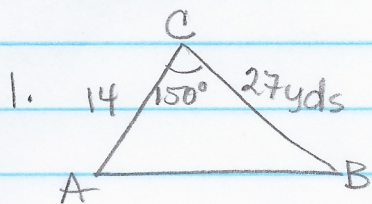 C
1. 14 150° 27yds
A B